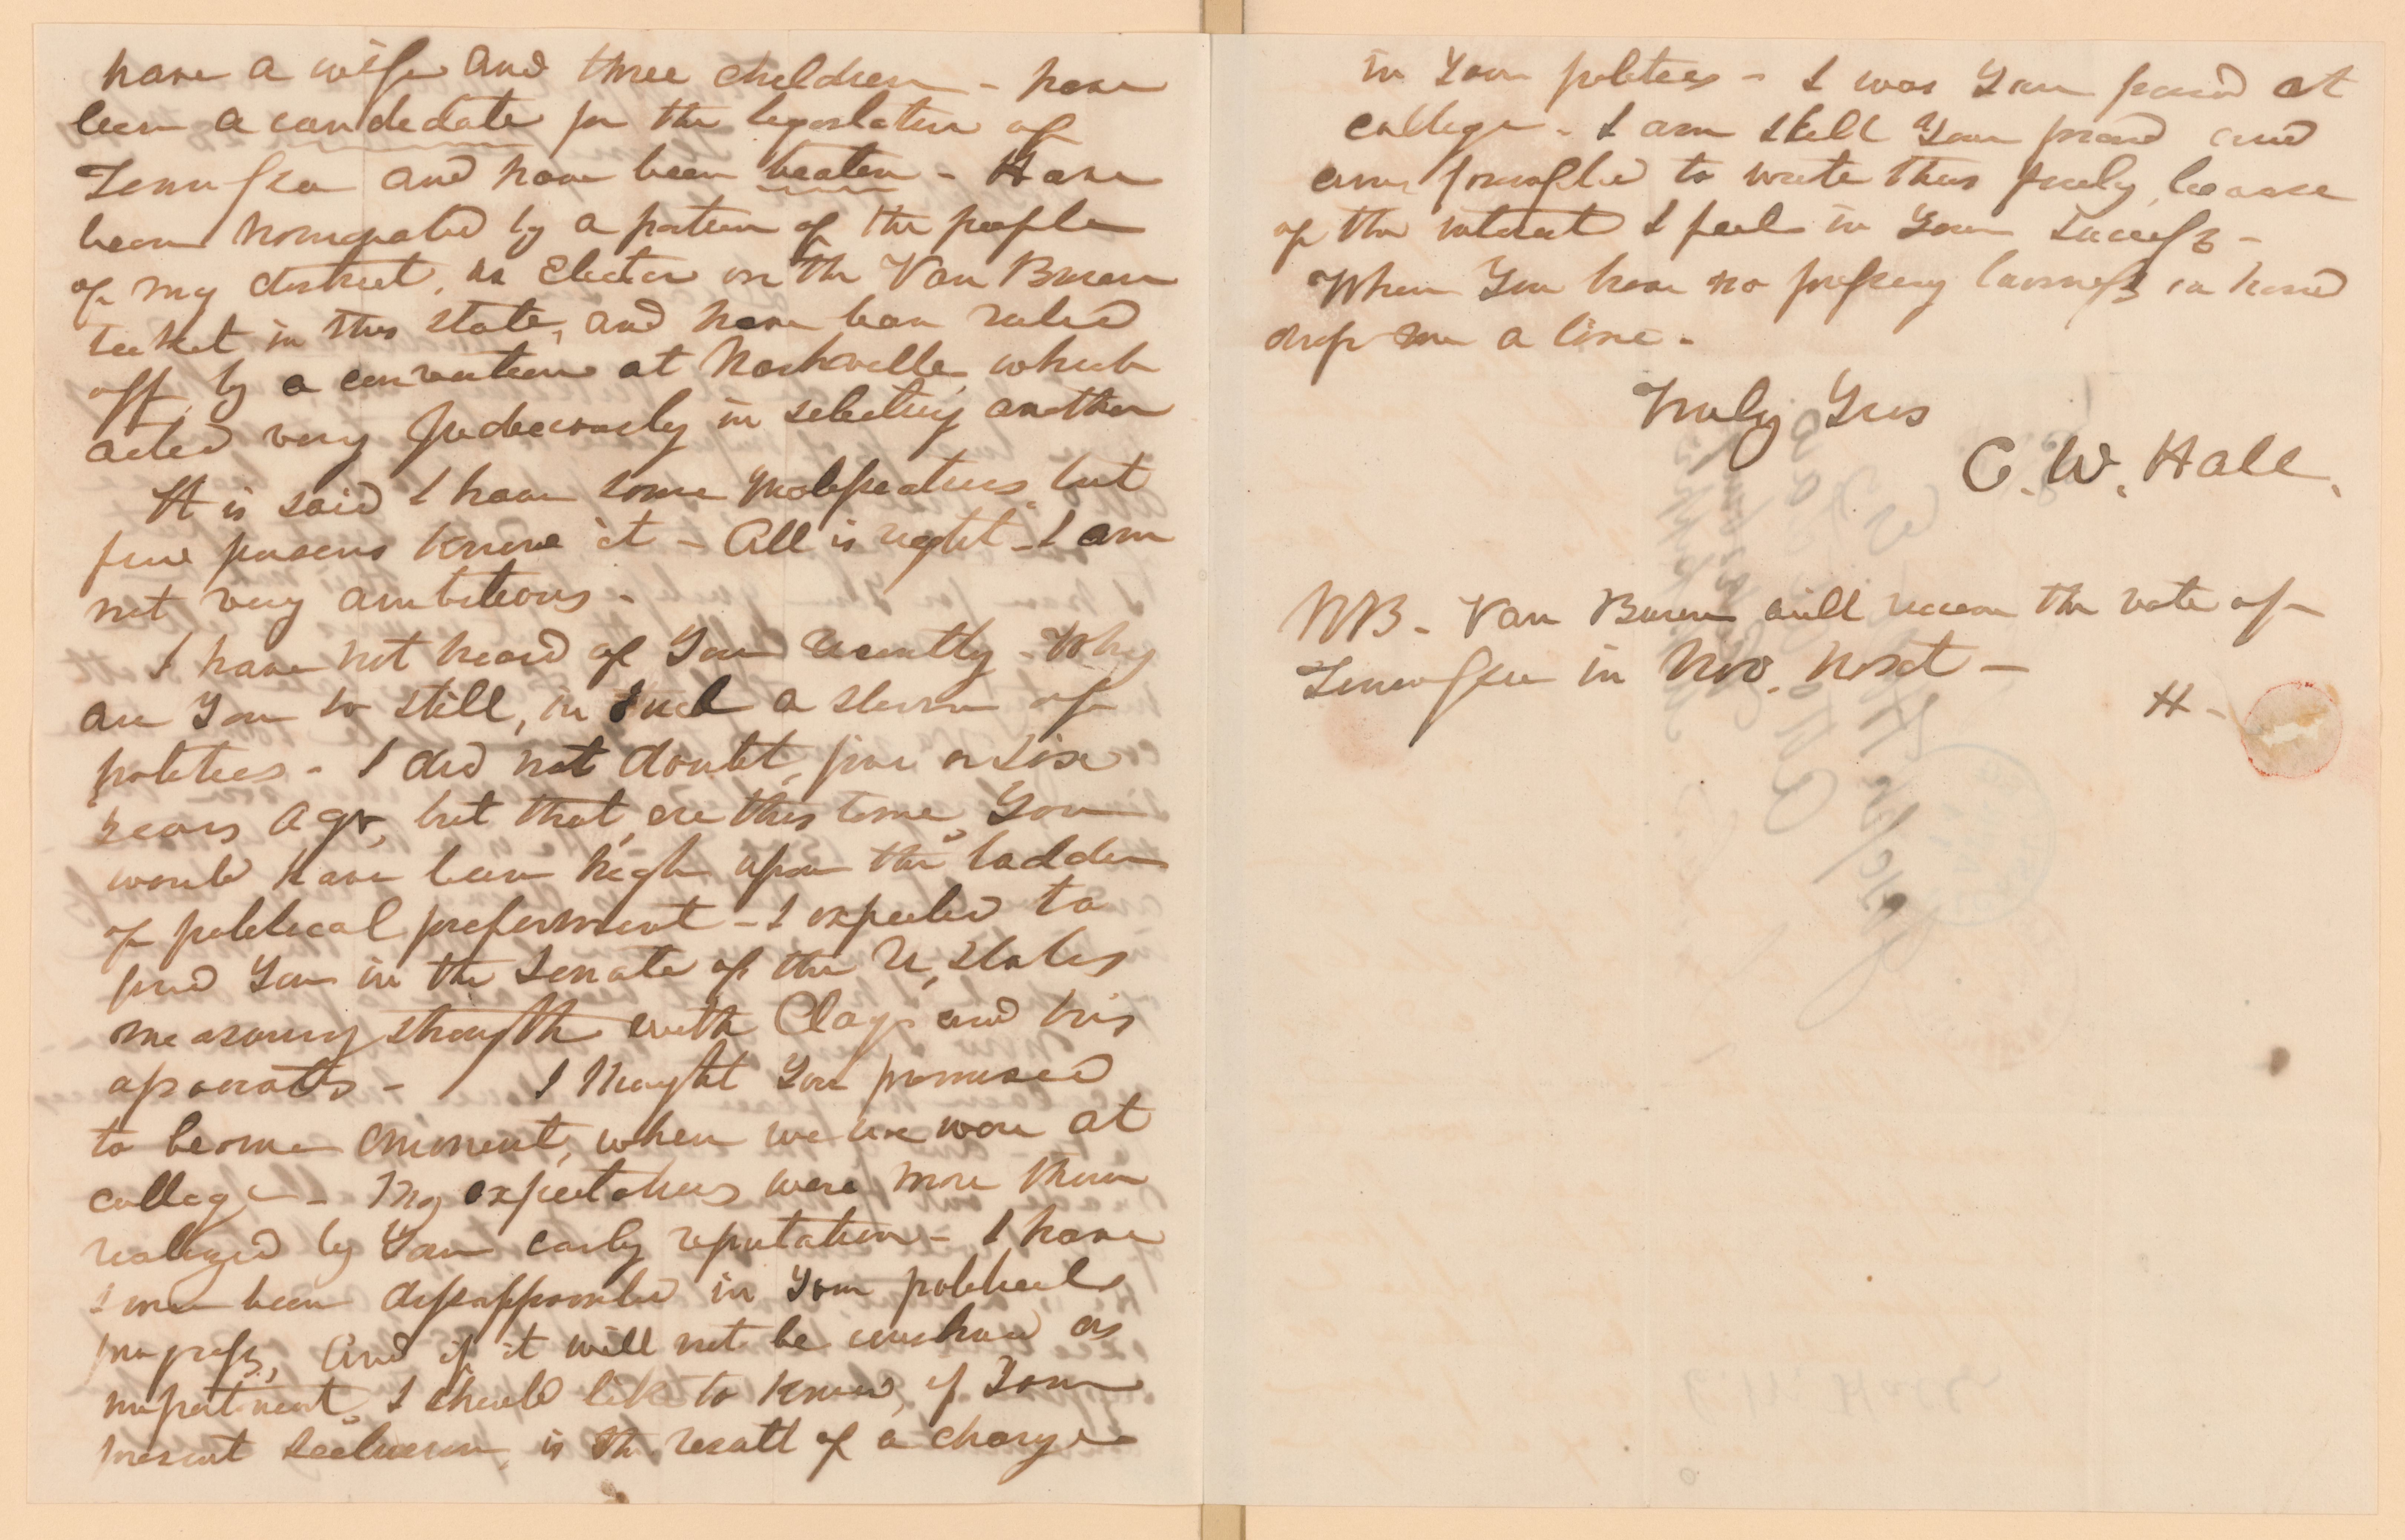 have a wife and three children - have
been a candidate for the legislature of
Tennessee and have been beaten - Have
been nominated by a portion of the people
of my district, as Elector on the Van Buren
ticket in this state, and have been ruled
off, by a convention at Nashville, which
acted very judiciously in selecting another
It is said I have some qualifications, but
few persons know it - All is right - I am
not very ambitious -
I have not heard of you recently - Why
are you so still, in such a storm of
politics - I did not doubt, five or six
years ago, but that, ere this time, you
would have been high upon the ladder
of political preferment - I expected to
find you in the Senate of the U, States
measuring strength with Clay and his
associates - I thought you promised
to become eminent, when we were at
college - My expectations were more than
realized by your early reputation - I have
since been disappointed in your political
progress, And if it will not be construed as
impertinent, I should like to know, if your
present seclusion, is the result of a change
in your politics - I was your friend at
college - I am still your friend and
am, to write thus freely, because
of the interest I feel in your success -
When you have no pressing business in hand
drop me a line -
Truly Yrs
C. W. Hall.
NB - Van Buren will receive the vote of
Tennessee in Nov. next -
H -